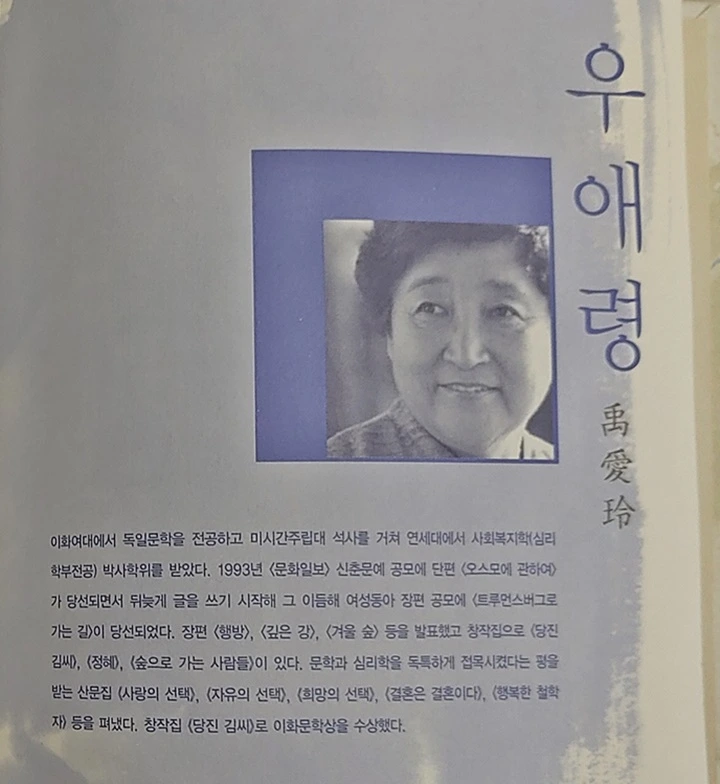 우애령
禹愛玲
이화여대에서 독일문학을 전공하고 미시간주립대 석사를 거쳐 연세대에서 사회복지학(심리
학부전공) 박사학위를 받았다. 1993년 〈문화일보〉 신춘문예 공모에 단편 〈오스모에 관하여〉
가 당선되면서 뒤늦게 글을 쓰기 시작해 그 이듬해 여성동아 장편 공모에 〈트루먼스버그로
가는 길〉이 당선되었다. 장편 〈행방〉, 〈깊은 강〉, 〈겨울 숲〉 등을 발표했고 창작집으로 〈당진
김씨〉, 〈정혜〉, 〈숲으로 가는 사람들〉이 있다. 문학과 심리학을 독특하게 접목시켰다는 평을
받는 산문집 〈사랑의 선택〉, 〈자유의 선택〉, 〈희망의 선택〉, 〈결혼은 결혼이다〉, 〈행복한 철학
자〉 등을 펴냈다. 창작집 〈당진 김씨〉로 이화문학상을 수상했다.